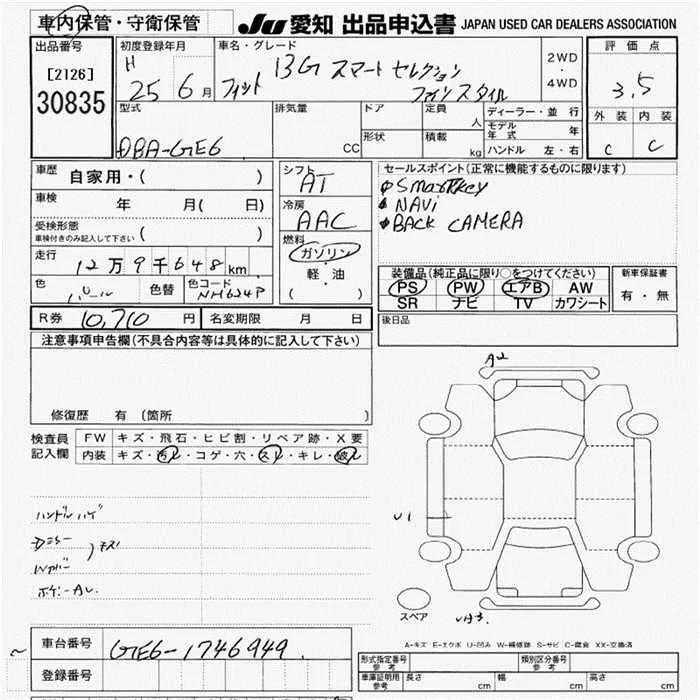 車内保管・守衛保管
JU 愛知 出品申込書 JAPAN USED CAR DEALERS ASSOCIATION
出品番号
[2126]
30835
初度登録年月
H
25 6 月
車名・グレード
フィット 13G スマートセレクション
ファインスタイル
2WD
・
4WD
評価点
3.5
外装 内装
C C
型式
DBA-GE6
排気量
CC
ドア
形状
定員
人
積載
kg
ディーラー・並行
モデル年式 年
ハンドル 左・右
車歴 自家用・( )
車検 年 月( 日)
受検形態
車検付きのみ記入して下さい ( )
走行 12万9千648 km
色
色替
色コード NH624P
シフト
AT
冷房
AAC
燃料
ガソリン
・
軽・油
( )
セールスポイント(正常に機能するものに限ります)
Smartkey
NAVi
BACK CAMERA
装備品(純正品に限り○をつけてください)
PS PW エアB AW
SR ナビ TV カワシート
新車保証書
有・無
後日品
R券 10,710 円
名変期限 月 日
注意事項申告欄(不具合内容等は具体的に記入して下さい)
修復歴 有 (箇所 )
検査員
記入欄
FW キズ・飛石・ヒビ割・リペア跡・X要
内装 キズ・汚レ・コゲ・穴・スレ・キレ・破レ
ハンドルハゲ
A2
U1
スペア
A-キズ E-エクボ U-凹み W-補修跡 S-サビ C-腐食 XX-交換済
車台番号 GE6-1746949
登録番号
~
形式指定番号
参考
類別区分番号
参考
車庫証明用
参考
長さ cm
幅 cm
高さ cm